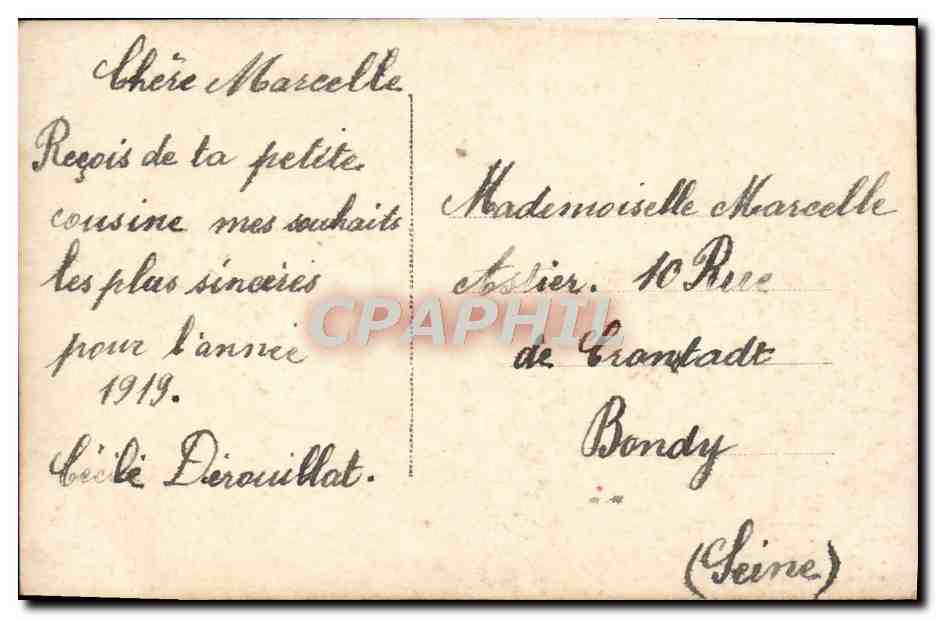 Chère Marcelle
Reçois de ta petite
cousine mes souhaits
les plus sincères
pour l'année
1919.
Cécile Dérouillat.
Mademoiselle Marcelle
Astier. 10 Rue
de Cronstadt
Bondy
(Seine)
CPAPHIL